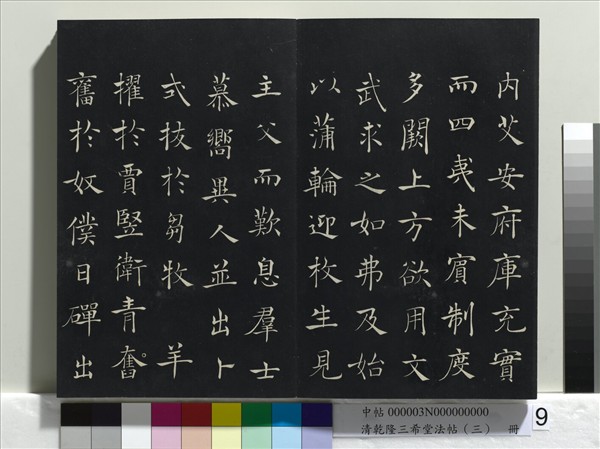 內艾安府庫充實
而四夷未賓制度
多闕上方欲用文
武求之如弗及始
以蒲輪迎枚生見
主父而歎息羣士
慕嚮異人並出卜
式拔於芻牧 羊
擢於賈豎衛青奮
奮於奴僕日磾出
中帖 000003N000000000
清乾隆三希堂法帖（三） 冊
9